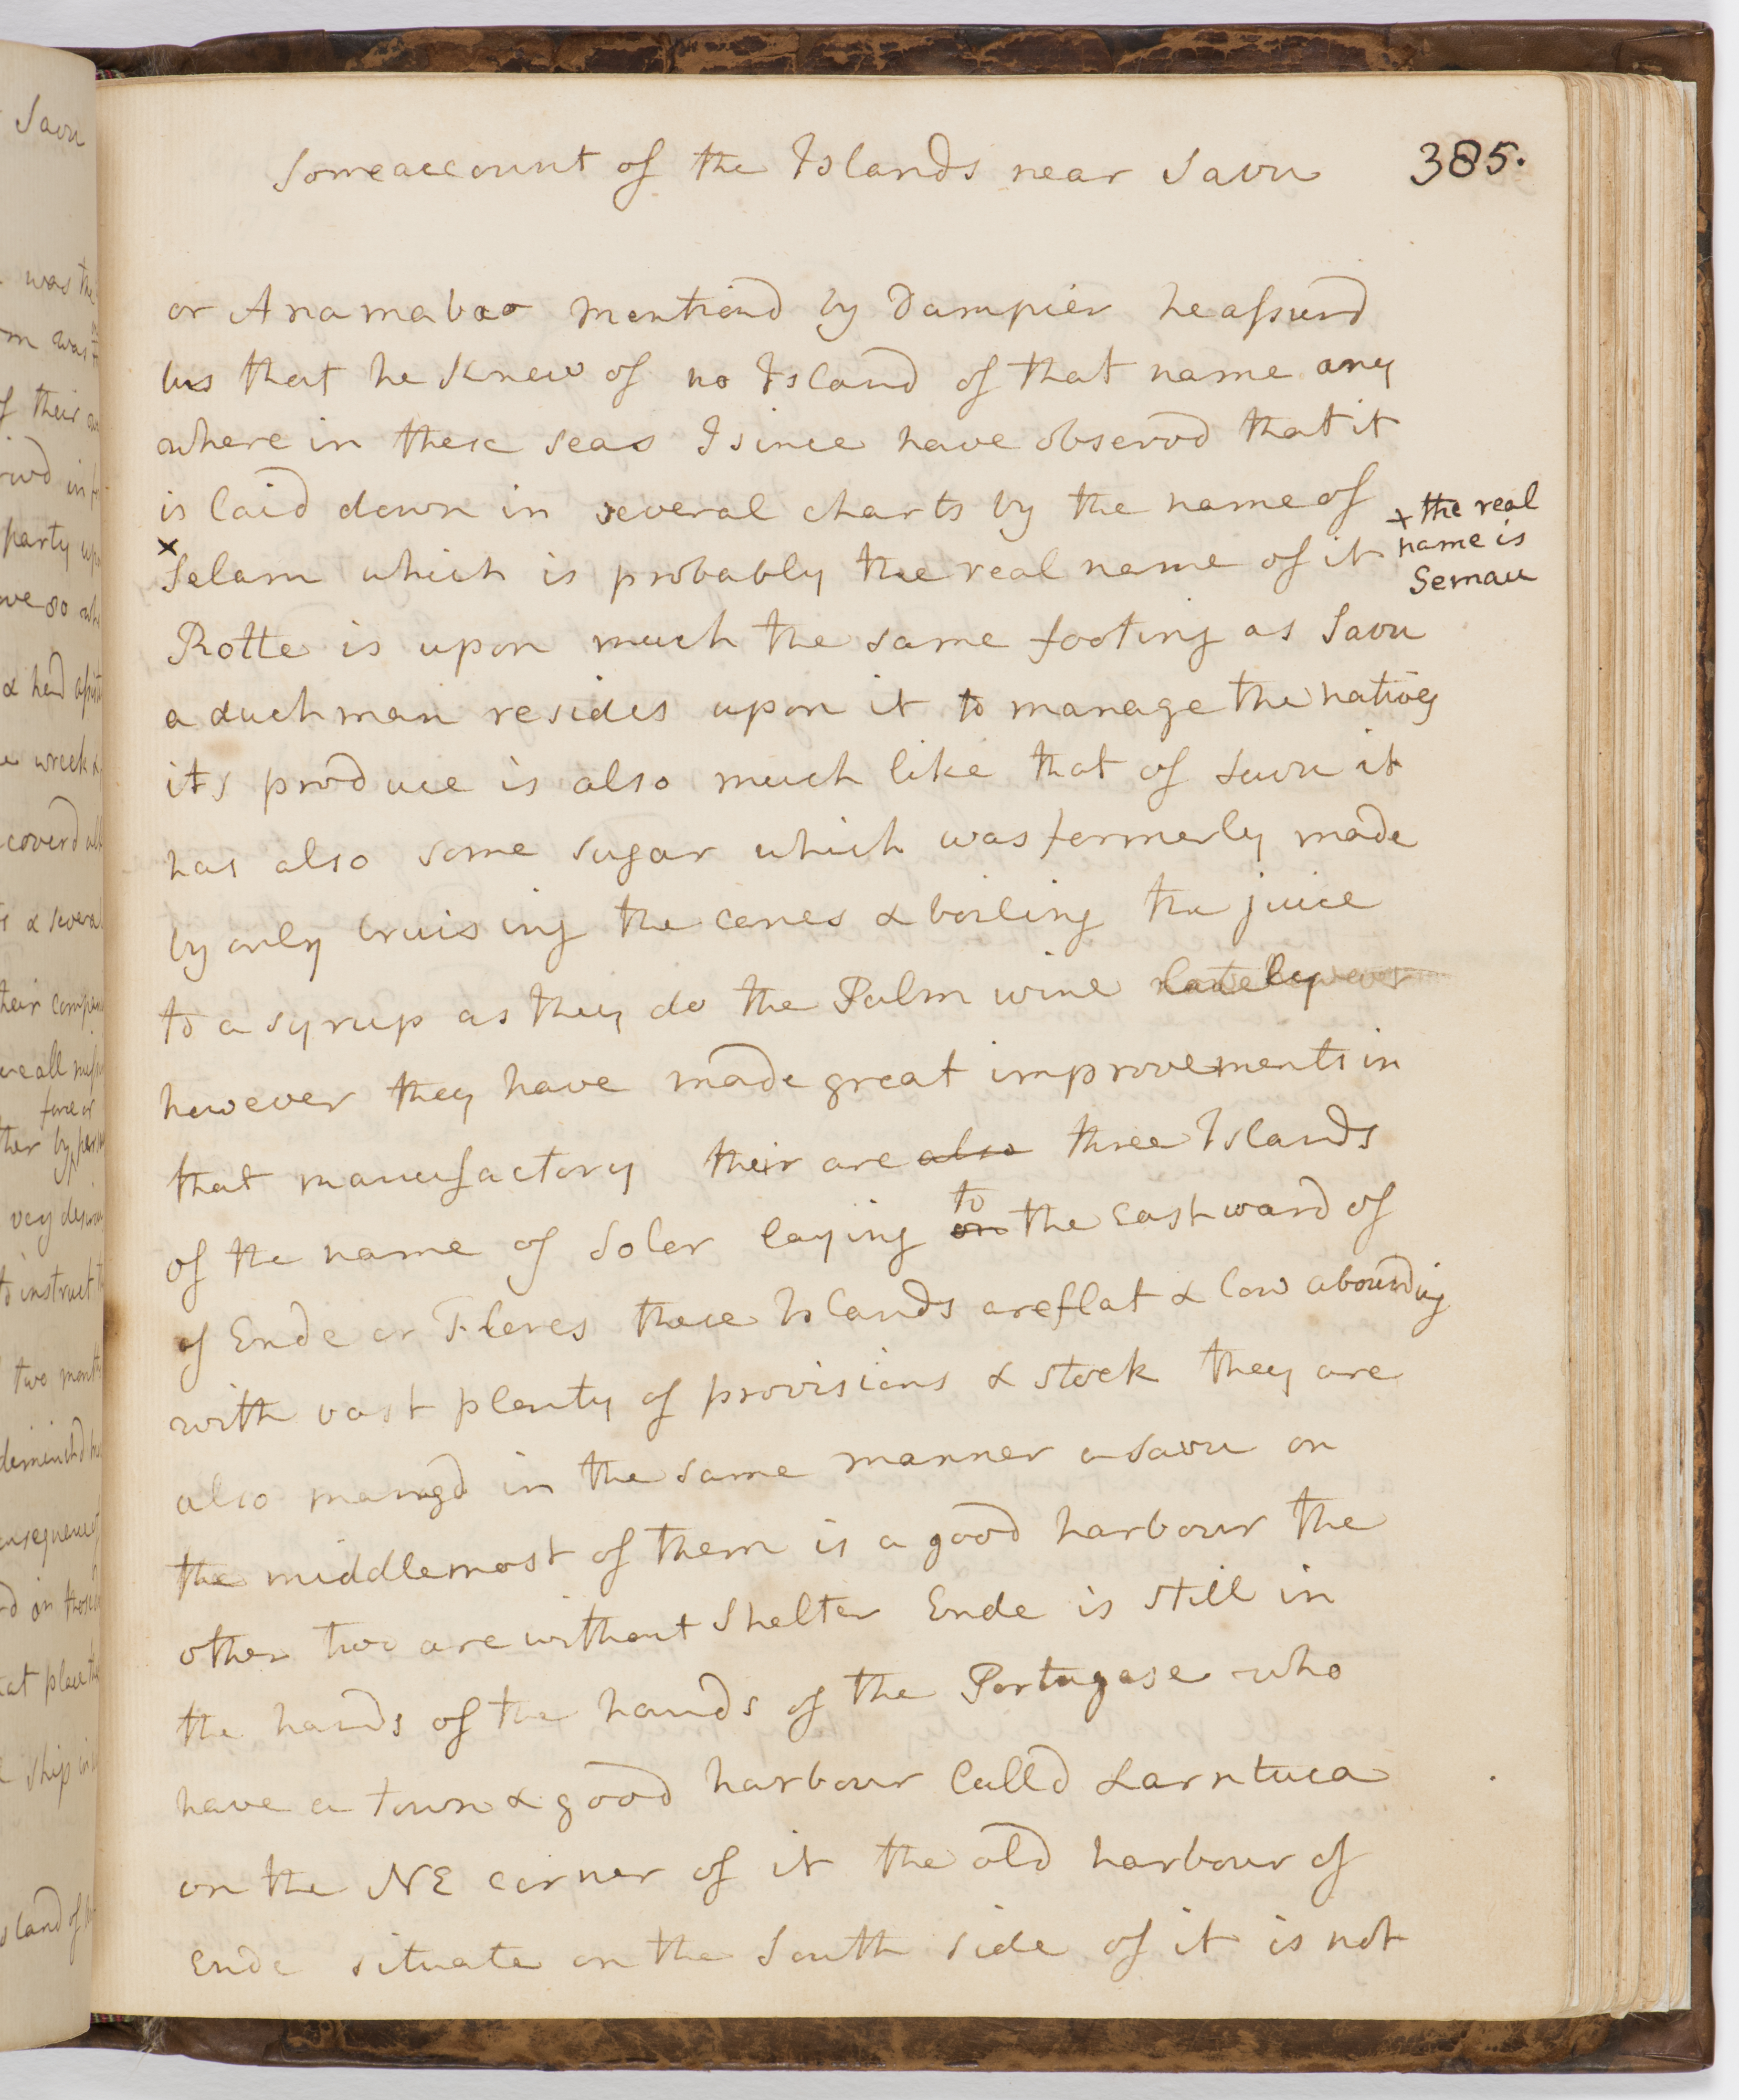 Some account of the Islands near Savu 385.
or Anamabao mentiond by Dampier he assurd
us that he Knew of no Island of that name any
where in these seas I since have observd that it
is laid down in several charts by the name of
× Selam which is probably the real name of it
+ the real
name is
Semau
Rotte is upon much the same footing as Savu
a duchman resides upon it to manage the natives
its produce is also much like that of Savu it
has also some sugar which was formerly made
by only bruising the canes & boiling the juice
to a syrup as they do the Palm wine lately
however they have made great improvements in
that manufactory their are also three Islands
of the name of Soler laying on to the eastward of
of Ende or Flores these Islands are flat & low abounding
with vast plenty of provisions & stock they are
also mangd in the same manner a Savu on
the middlemost of them is a good harbour the
other two are without Shelter Ende is still in
the hands of the hands of the Portugese who
have a town & good harbour Calld Larntuca
on the NE corner of it the old harbour of
Ende situate on the South side of it is not
Savu
was the
m was
of their
in
party up
& had
wreck &
coverd all
& severa
their
we all
force or
ther by
very
to instruct
two month
on those
at place
ship in
sland of